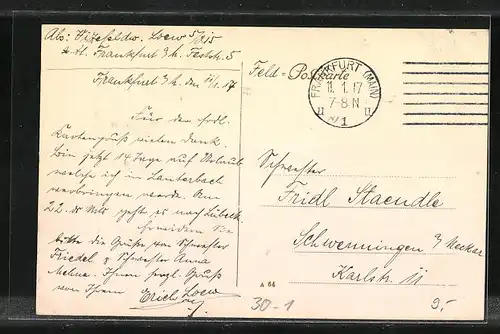 Abs: Vizefeldw. Loew 5/815
z. Zt. Frankfurt a/M. Feststr. 5
Frankfurt a/M. den 11/1.17
Für den frdl.
Kartengruß vielen Dank.
Bin jetzt 14 Tage auf Urlaub
welche ich in Lauterbach
verbringen werde. Am
22. ds Mts geht es nach Lübeck.
Erwidern Sie
bitte die Grüße von Schwester
Friedel & Schwester Anna
Ihnen herzl. Gruß
von Ihrem Erich Loew
Feld - Postkarte
FRANKFURT (MAIN)
11.1.17
7-8 N
1
Schwester
Fridl Staendle
Schwenningen a/ Neckar
Karlstr. 11
A 64
30-1
9.-